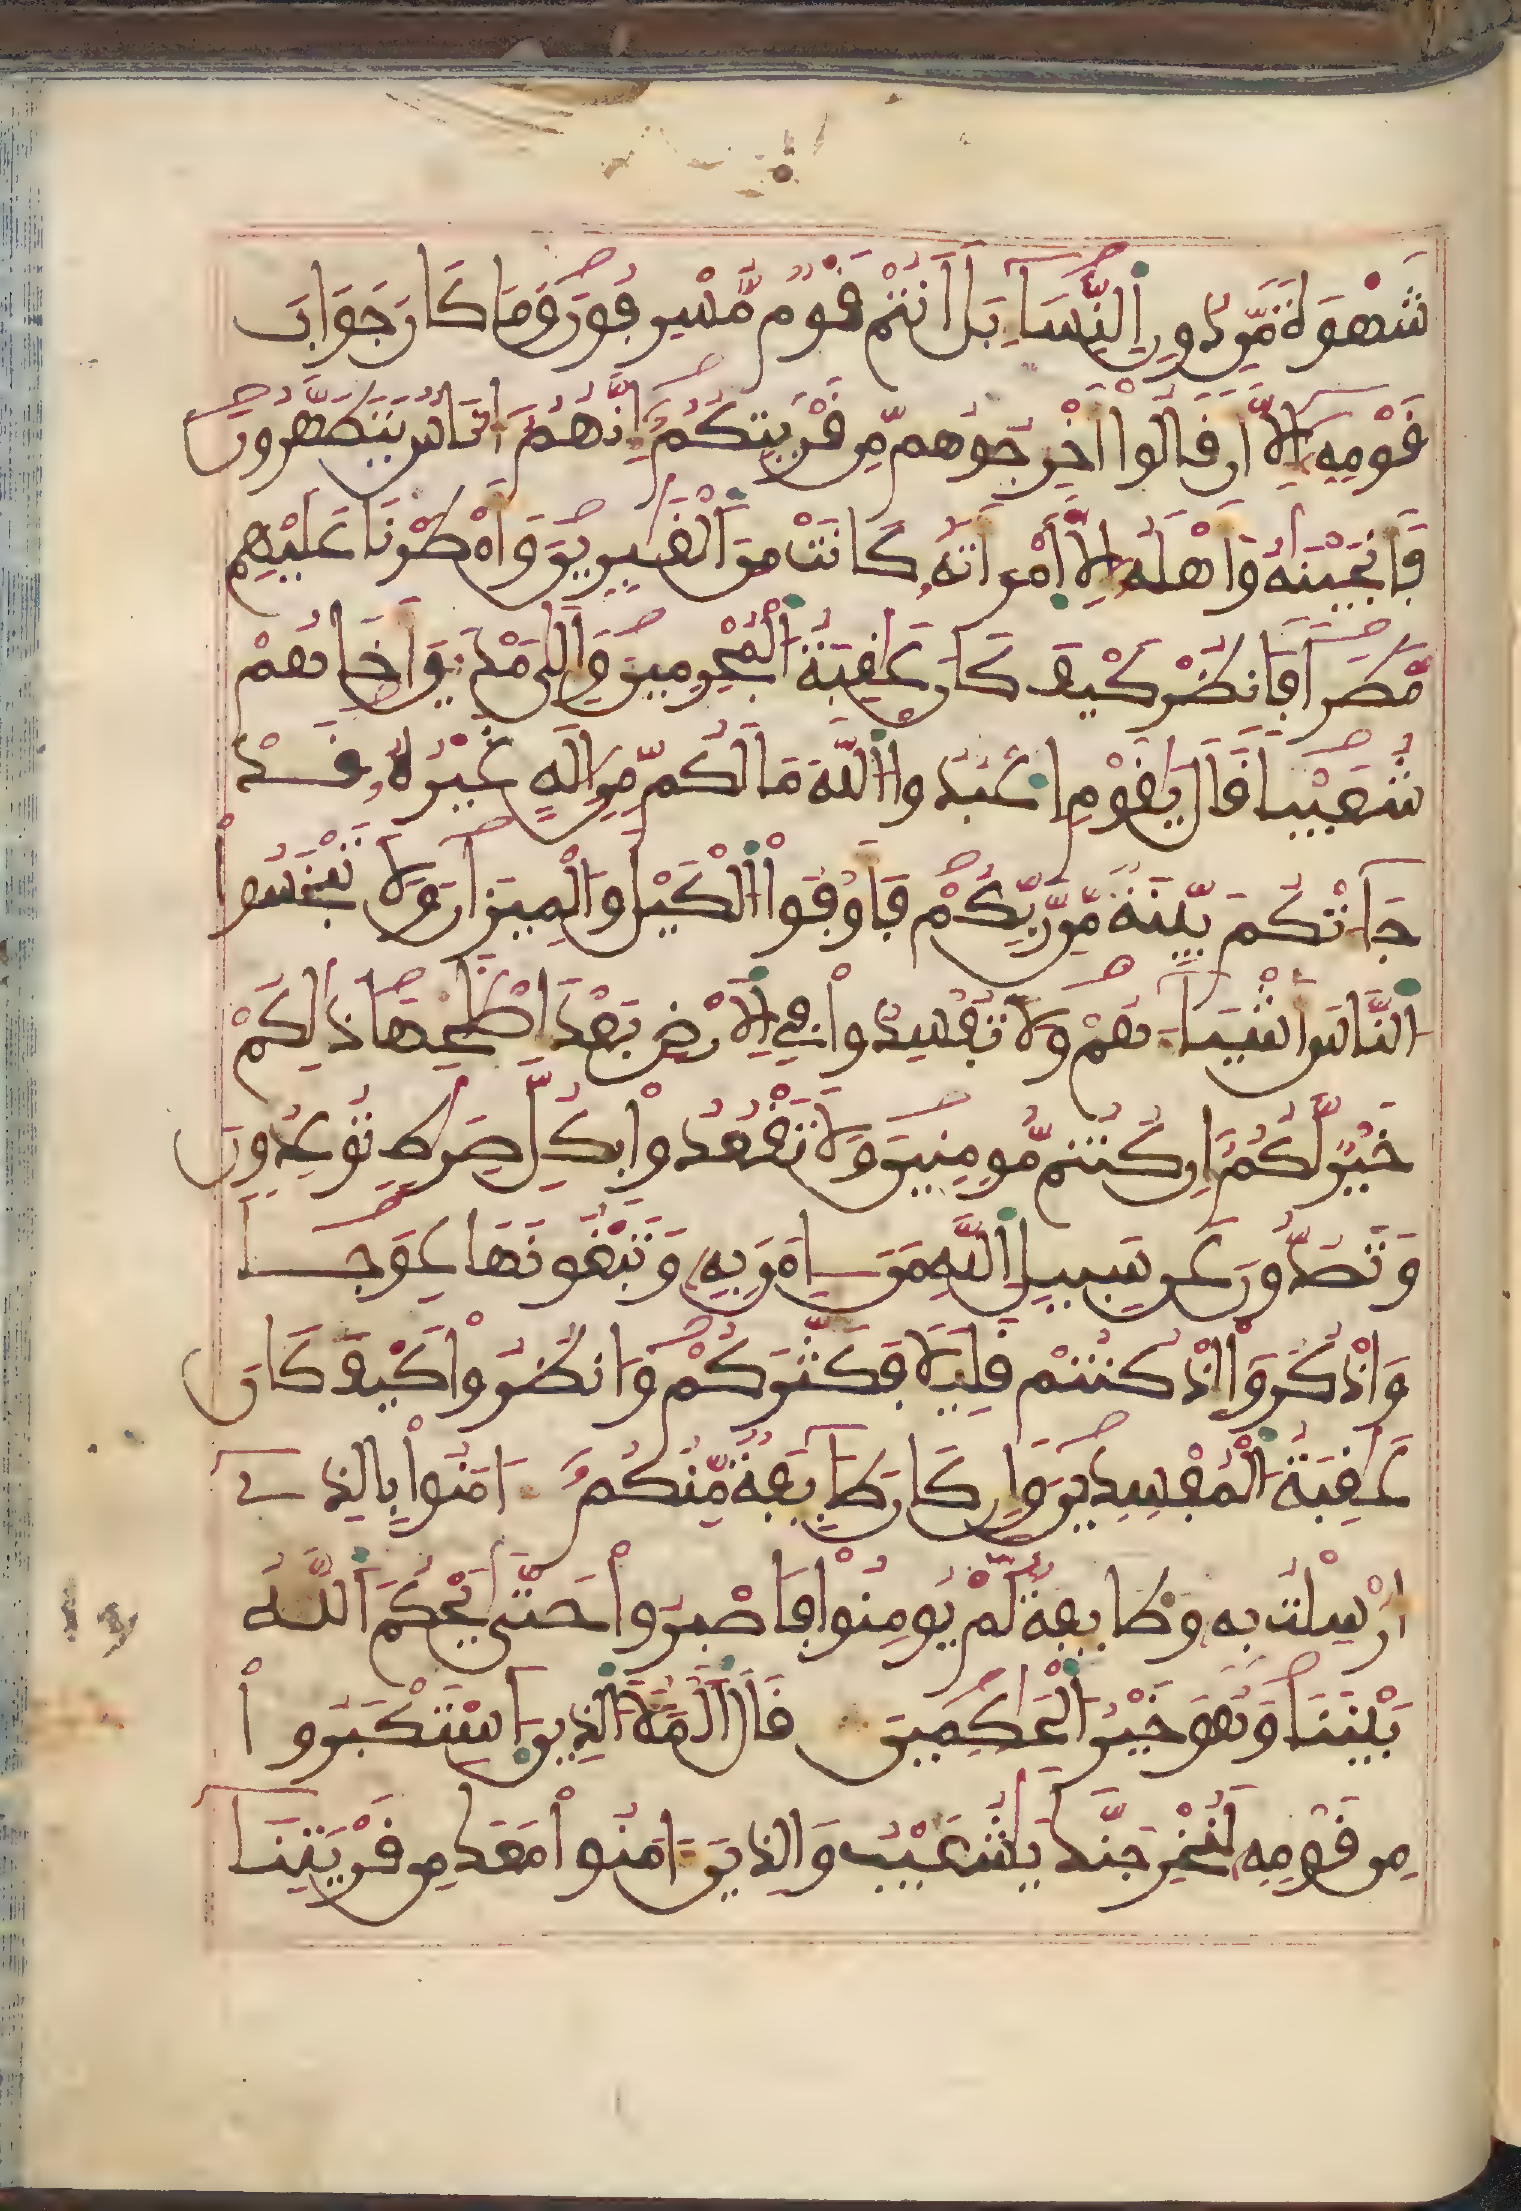 شَهْوَةً مِّن دُونِ اِ۬لنِّسَآءِ بَلَ اَنتُمْ قَوْمٌ مُّسْرِفُونَ وَمَا كَانَ جَوَابَ
قَوْمِهِ إِلَّا أَن قَالُوا أَخْرِجُوهُم مِّن قَرْيَتِكُمُ إِنَّهُمُ أُنَاسٌ يَتَطَهَّرُونَ
فَأَنجَيْنَهُ وَأَهْلَهُ إِلَّا اَمْرَأَتَهُ كَانَتْ مِنَ اَلْغَبِرِينَ وَأَمْطَرْنَا عَلَيْهِم
مَّطَرًا فَانظُرْ كَيْفَ كَانَ عَقِبَةُ اُلْمُجْرِمِينَ وَإِلَى مَدْيَنَ أَخَاهُمْ
شُعَيْبًا قَالَ يَقَوْمِ اِعْبُدُوا اللَّهَ مَا لَكُم مِّنِ اِلَهٍ غَيْرُهُ قَدْ
جَآءَتْكُم بَيِّنَةٌ مِّن رَّبِّكُمْ فَأَوْفُوا الْكَيْلَ وَالْمِيزَانَ وَلَا تَبْخَسُوا
اَلنَّاسَ أَشْيَآءَهُمْ وَلَا تُفْسِدُوا فِي اِلَارْضِ بَعْدَ إِصْلَحِهَا ذَلِكُمْ
خَيْرٌ لَّكُمُ إِن كُنتُم مُّومِنِينَ وَلَا تَقْعُدُوا بِكُلِّ صِرَطٍ تُوعِدُونَ
وَتَصُدُّونَ عَن سَبِيلِ اِللَّهِ مَنَ اٰمَنَ بِهِ وَتَبْغُونَهَا عِوَجًا
وَاذْكُرُوا إِذْ كُنتُمْ قَلِيلًا فَكَثَّرَكُمْ وَانظُرُوا كَيْفَ كَانَ
عَقِبَةُ اُلْمُفْسِدِينَ وَإِن كَانَ طَآئِفَةٌ مِّنكُمُ ءَامَنُوا بِالَّذِي
أُرْسِلْتُ بِهِ وَطَآئِفَةٌ لَّمْ يُومِنُوا فَاصْبِرُوا حَتَّى يَحْكُمَ اَللَّهُ
بَيْنَنَا وَهُوَ خَيْرُ اُلْحَكِمِينَ قَالَ اَلْمَلَأُ اُلذِينَ اَسْتَكْبَرُوا
مِن قَوْمِهِ لَنُخْرِجَنَّكَ يَشُعَيْبُ وَالذِينَ ءَامَنُوا مَعَكَ مِن قَرْيَتِنَا